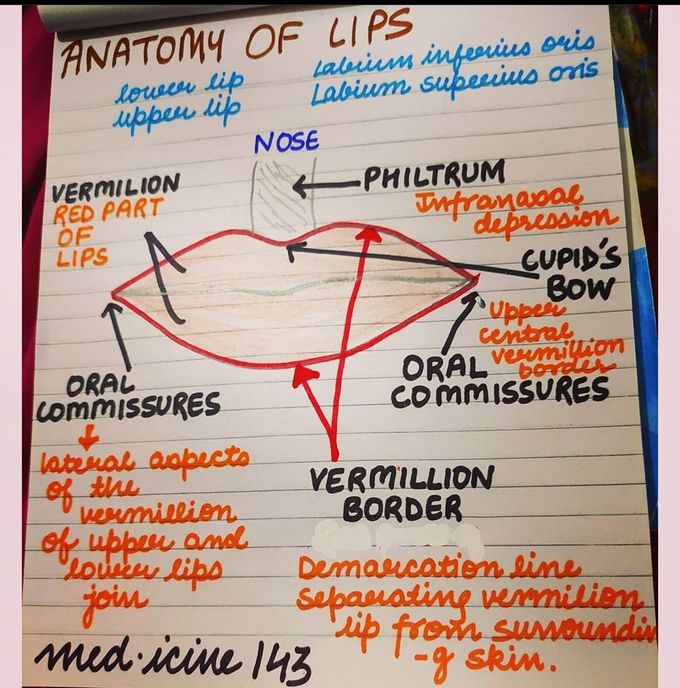 ANATOMY OF LIPS
lower lip
upper lip
Labium inferius oris
Labium superius oris
NOSE
PHILTRUM
Infranasal
depression
VERMILION
RED PART
OF
LIPS
CUPID'S
BOW
Upper
central
vermillion
border
ORAL
COMMISSURES
ORAL
COMMISSURES
lateral aspects
of the
vermillion
of upper and
lower lips
join
VERMILLION
BORDER
Demarcation line
separating vermilion
lip from surroundin
-g skin.
med.icine 143